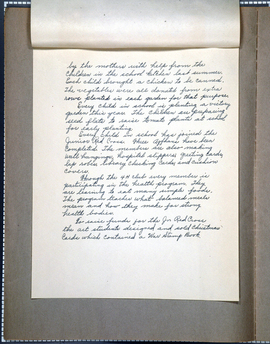 by the mothers with help from the
children in the school kitchen last summer
Each child brought a chicken to be canned.
The vegetables were all donated from extra
rows planted in each garden for that purpose.
Every child in school is planting a victory
garden this year. The children are preparing
seed flats to raise tomato plants at school
for early planting.
Every child in school has joined the
Junior Red Cross. Three afghans have been
completed. The members are now making
wall hangings, hospital slippers, writing boards,
lap robes, library checking cards, and cushion
covers.
Through the 4H club every member is
participating in the health program. They
are learning to eat many simple foods.
The program teaches what balanced meals
mean and how they make for strong
health bodies.
To raise funds for the Jr Red Cross
the art students designed and sold Christmas
Cards which contained a War Stamp Book